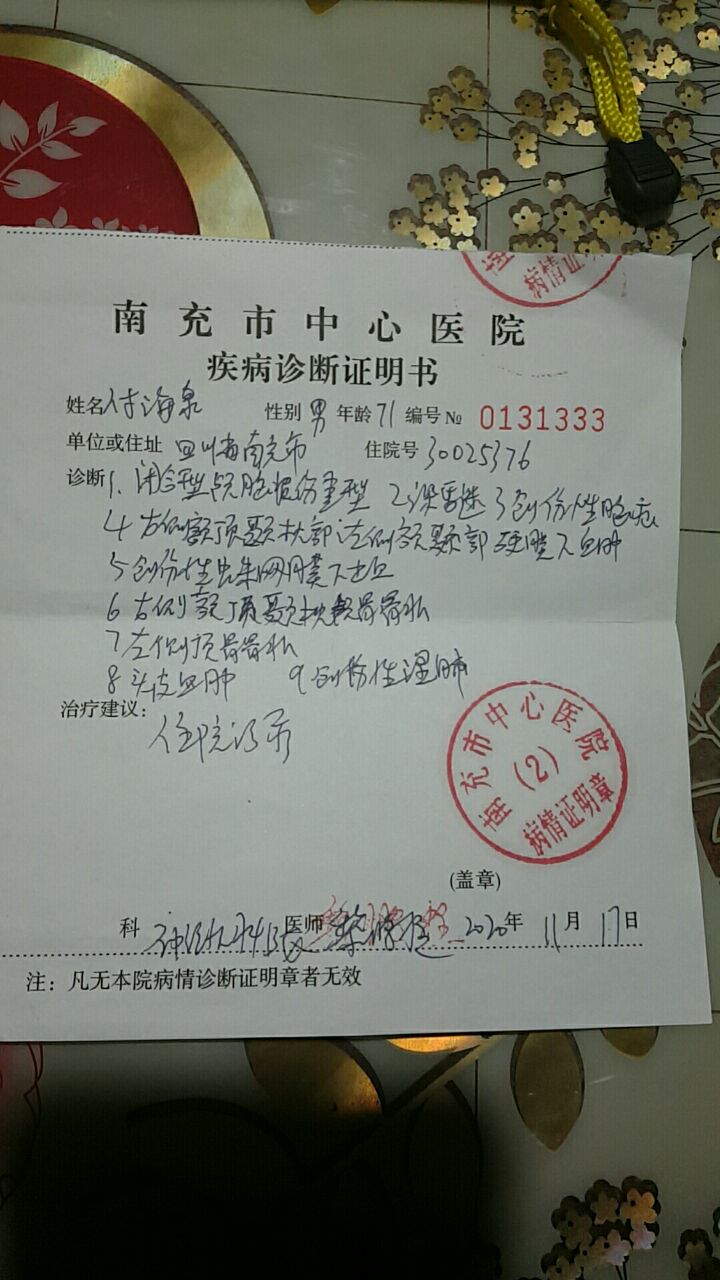 病情证明
南充市中心医院
疾病诊断证明书
姓名 付海泉 性别 男 年龄 71 编号№ 0131333
单位或住址 四川省南充市 住院号 30025376
诊断 1. 闭合型颅脑损伤重型 2 深昏迷 3 创伤性脑疝
4 右侧额顶颞枕部 左侧额颞部硬膜下血肿
5 创伤性蛛网膜下出血
6 右侧额顶颞枕 骨骨折
7 左侧顶骨骨折
8 头皮血肿 9 创伤性湿肺
治疗建议：
住院治疗
南充市中心医院
(2)
病情证明章
(盖章)
科 神经外科 医师 2020年 11月 17日
注：凡无本院病情诊断证明章者无效